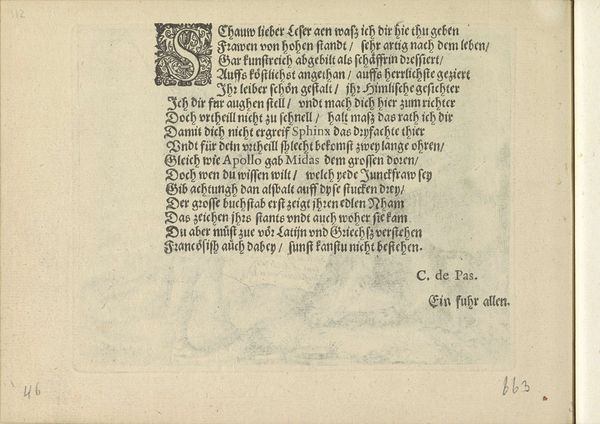 112
SChauw lieber Leser aen wasz ich dir hie thu geben
Frawen von hohen standt / sehr artig nach dem leben /
Gar kunstreich abgebilt als schäffrin dressiert /
Auffs köstlichst angethan / auffs herrlichste geziert
Ihr leiber schön gestalt / ihr Himlische gesichter
Ich dir fur aughen stell / vndt mach dich hier zum richter
Doch vrtheill nicht zu schnell / halt masz das rath ich dir
Damit dich nicht ergreif Sphinx das dryfachte thier
Vndt für dein vrtheill schlecht bekomst zwey lange ohren /
Gleich wie Apollo gab Midas dem grossen doren /
Doch wen du wissen wilt / welch yede Junckfraw sey
Gib achtungh dan alsbalt auff dyse stucken drey /
Der grosse buchstab erst zeigt ihren edlen Nham
Das zeichen jhrs stants vndt auch woher sie kam
Du aber müst zue vör Latijn vnd Griechsz verstehen
Francösisch aüch dabey / sunst kanstu nicht bestehen.
C. de Pas.
Ein fuhr allen.
46
663